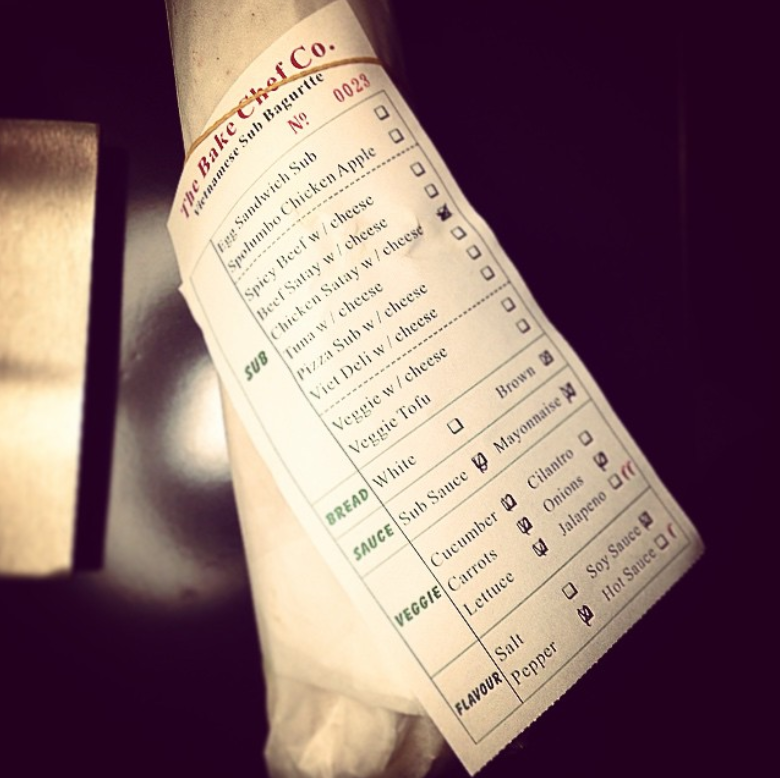 The Bake Chef Co.
Vietnamese Sub Bagurtte
Nº 0023
Egg Sandwich Sub
Spolumbo Chicken Apple
Spicy Beef w / cheese
Beef Satay w / cheese
Chicken Satay w / cheese
Tuna w / cheese
Pizza Sub w / cheese
Viet Deli w / cheese
Veggie w / cheese
Veggie Tofu
SUB
White Brown
BREAD
Sub Sauce Mayonnaise
SAUCE
Cucumber Cilantro
Carrots Onions
Lettuce Jalapeno
VEGGIE
Salt Soy Sauce
Pepper Hot Sauce
FLAVOUR